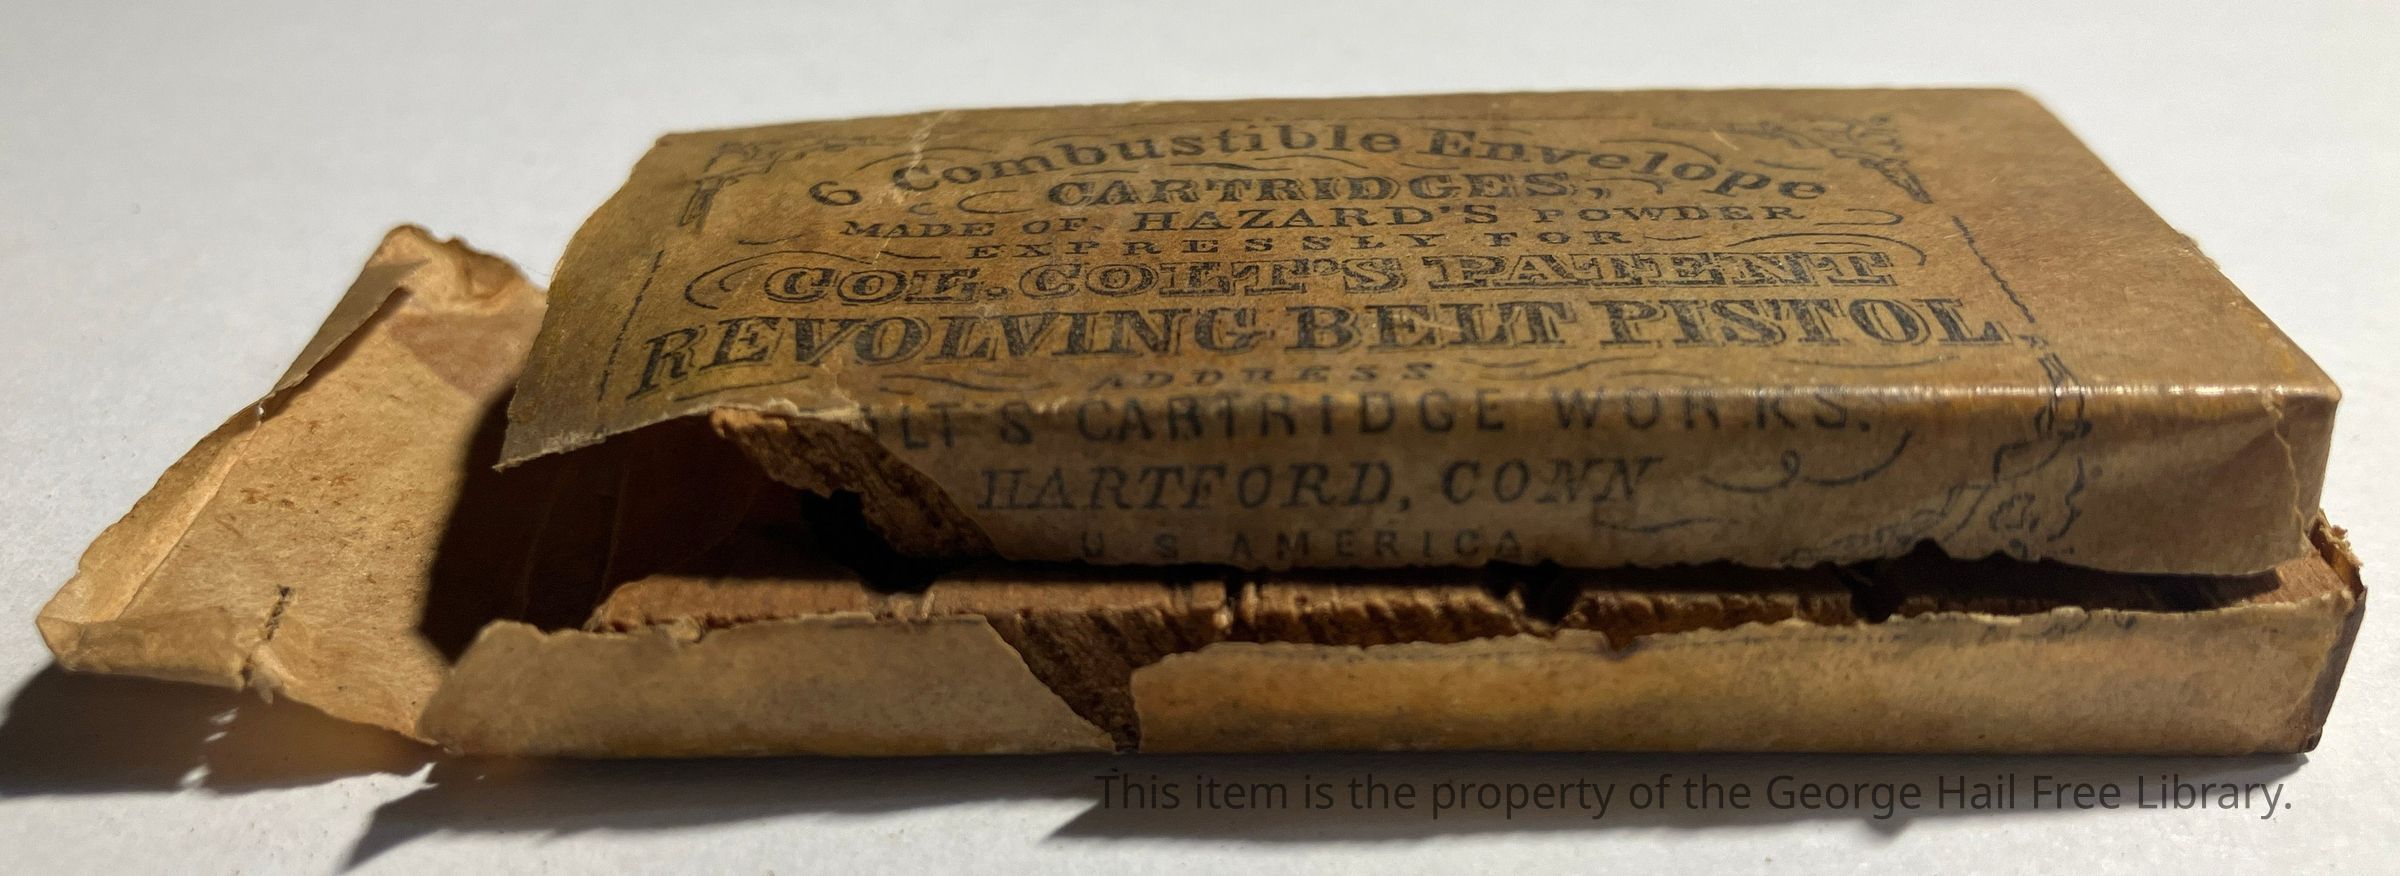 6 Combustible Envelope
CARTRIDGES,
MADE OF HAZARD'S POWDER
EXPRESSLY FOR
COL. COLT'S PATENT
REVOLVING BELT PISTOL,
ADDRESS
LT'S CARTRIDGE WORKS.
HARTFORD, CONN
U S AMERICA
This item is the property of the George Hail Free Library.